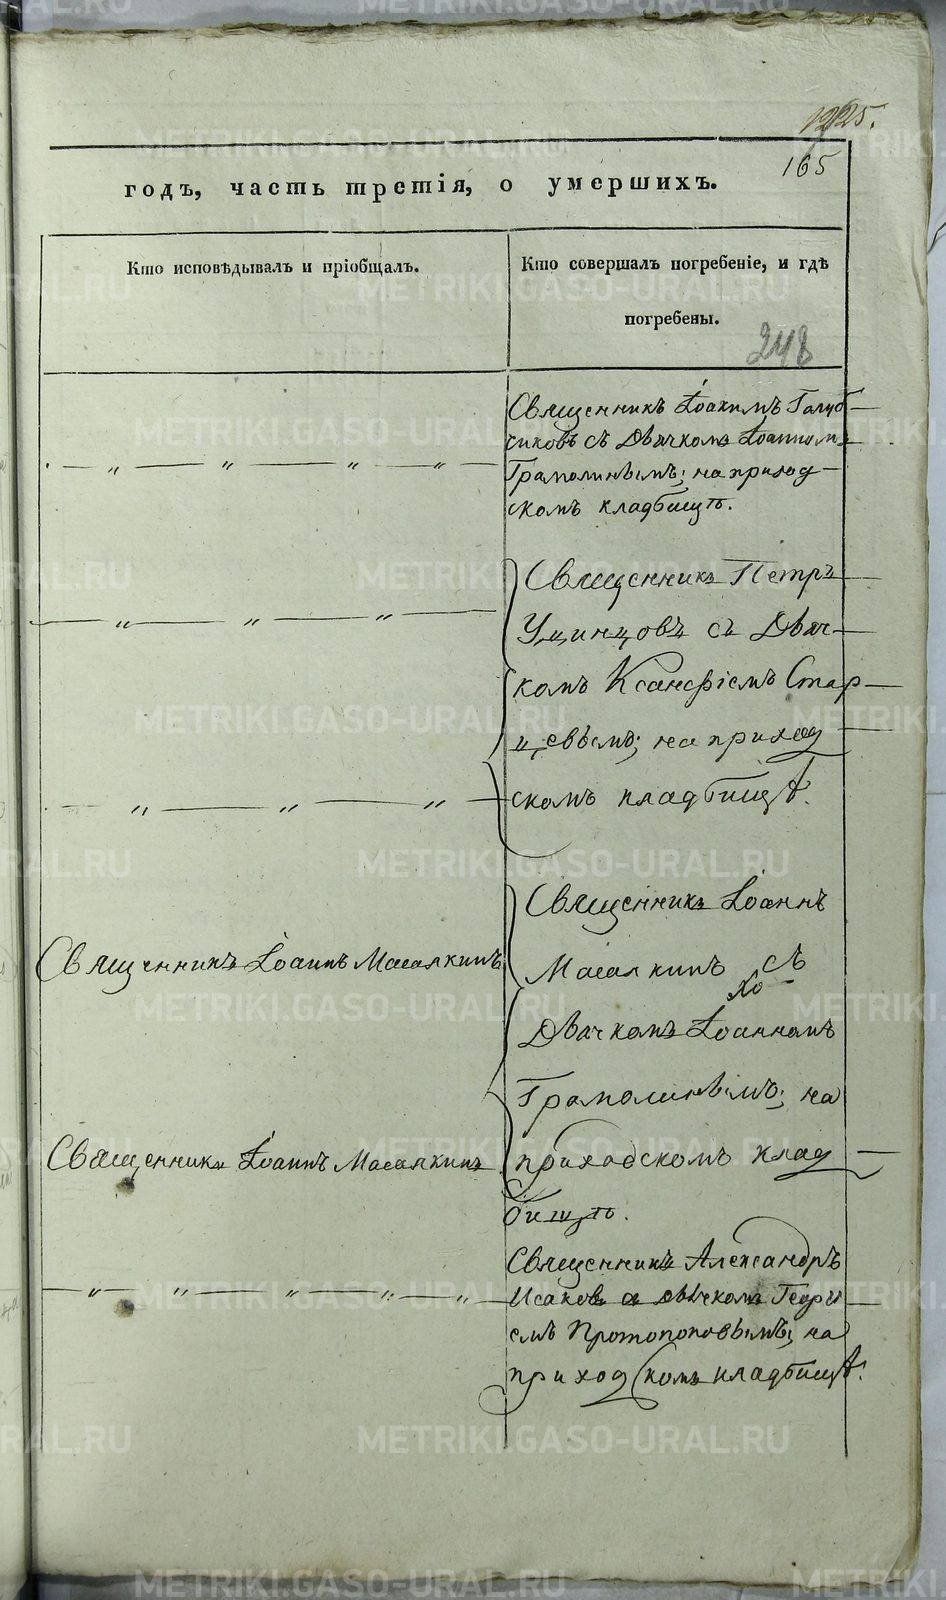 165
годъ, часть третія, о умершихъ.
Кто исповѣдывалъ и пріобщалъ.
Кто совершалъ погребеніе, и гдѣ
погребены.
248
Священникъ Іоакимъ Голуб
чиковъ съ Дьячкомъ Іоанном
Грамолинымъ; на приход
скомъ кладбищѣ.
Священникъ Петръ
Удинцовъ съ Дьяч
комъ Ксанфіемъ Стар
цевымъ; на приход
скомъ кладбищѣ.
Священникъ Іоаннъ
Священникъ Іоаннъ Масалкинъ
Масалкинъ съ
Дьячкомъ Іоанномъ
Грамолинымъ; на
Священникъ Іоаннъ Масалкинъ
приходскомъ клад
бищѣ.
Священникъ Александръ
Исаковъ съ дьячкомъ Георгі
емъ Протопоповымъ; на
приходскомъ кладбищѣ.
METRIKI.GASO-URAL.RU